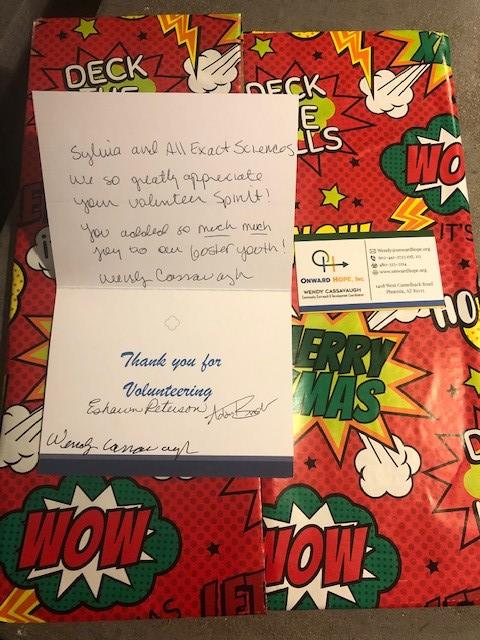 DECK
THE
DECK
THE
LLS
WO
IT'S
HO
Sylvia and All Exact Sciences
We so greatly appreciate
your volunteer Spirit!
You added so much much
joy to our foster youth!
Wendy Cassavaugh
Thank you for
Volunteering
Eshawn Peterson
Wendy Cassavaugh
OH
ONWARD HOPE, INC.
WENDY CASSAVAUGH
Community Outreach & Development Coordinator
Wendy@onwardhope.org
www.onwardhope.org
1408 West Camelback Road
Phoenix, AZ 85013
MERRY
XMAS
WOW
WOW
LET